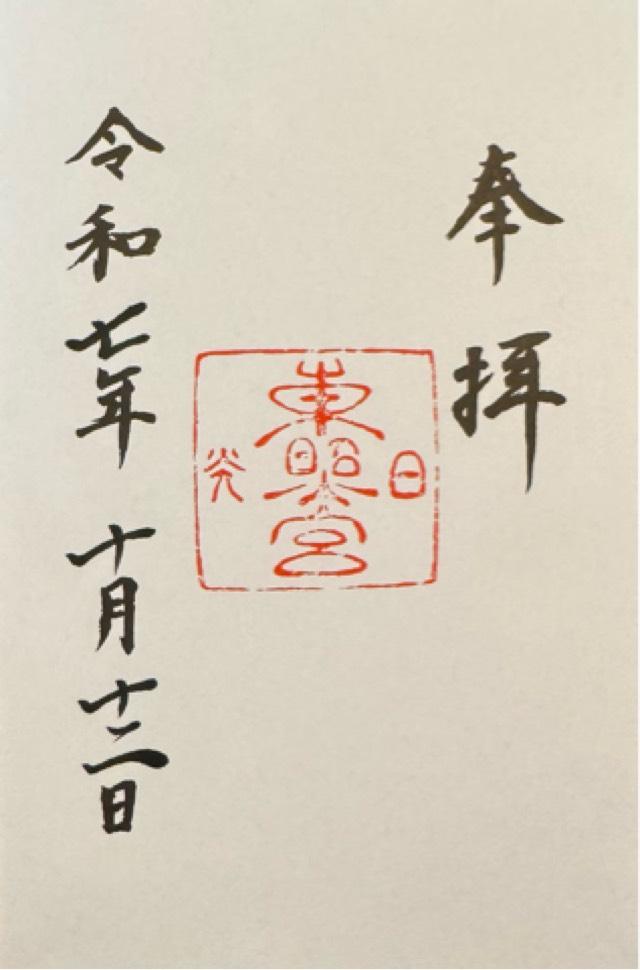 奉拝
日
東照宮
光
令和七年 十月十二日